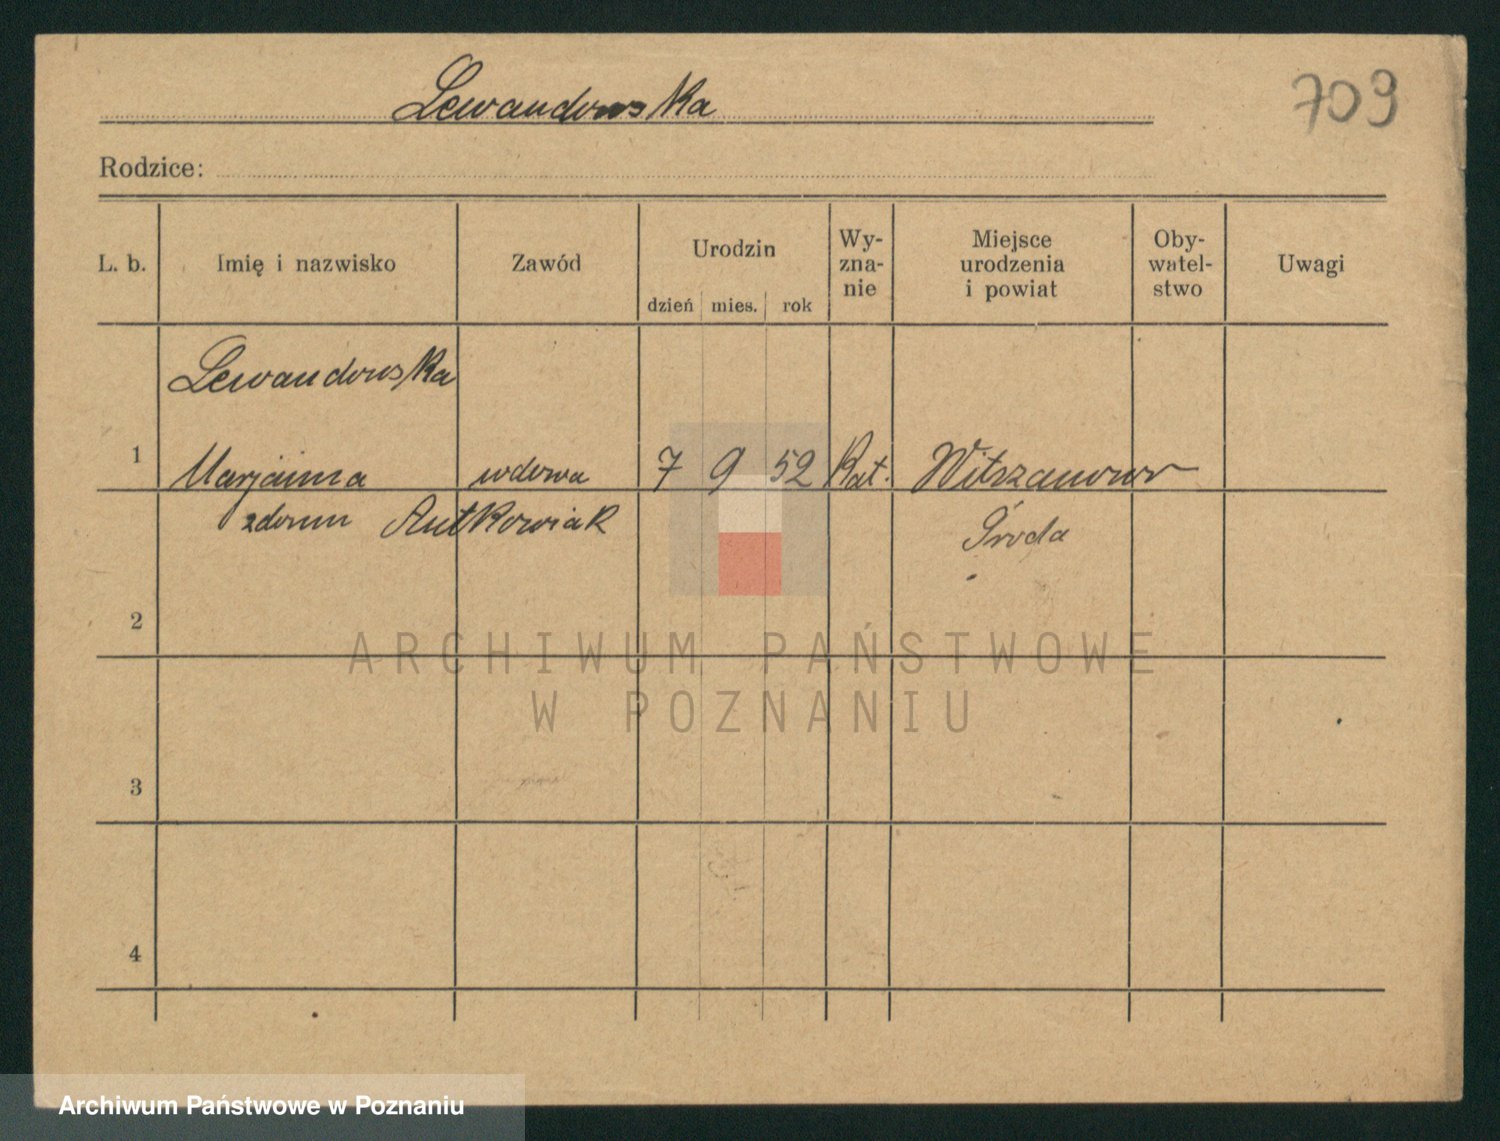 Lewandowska
709
Rodzice:
L. b.
Imię i nazwisko
Zawód
Urodzin
dzień mies. rok
Wy-
zna-
nie
Miejsce
urodzenia
i powiat
Oby-
watel-
stwo
Uwagi
Lewandowska
1 Marjanna wdowa 7 9 52 Kat.
zdomu Antkowiak Środa
2
3
4
ARCHIWUM PAŃSTWOWE
W POZNANIU
Archiwum Państwowe w Poznaniu